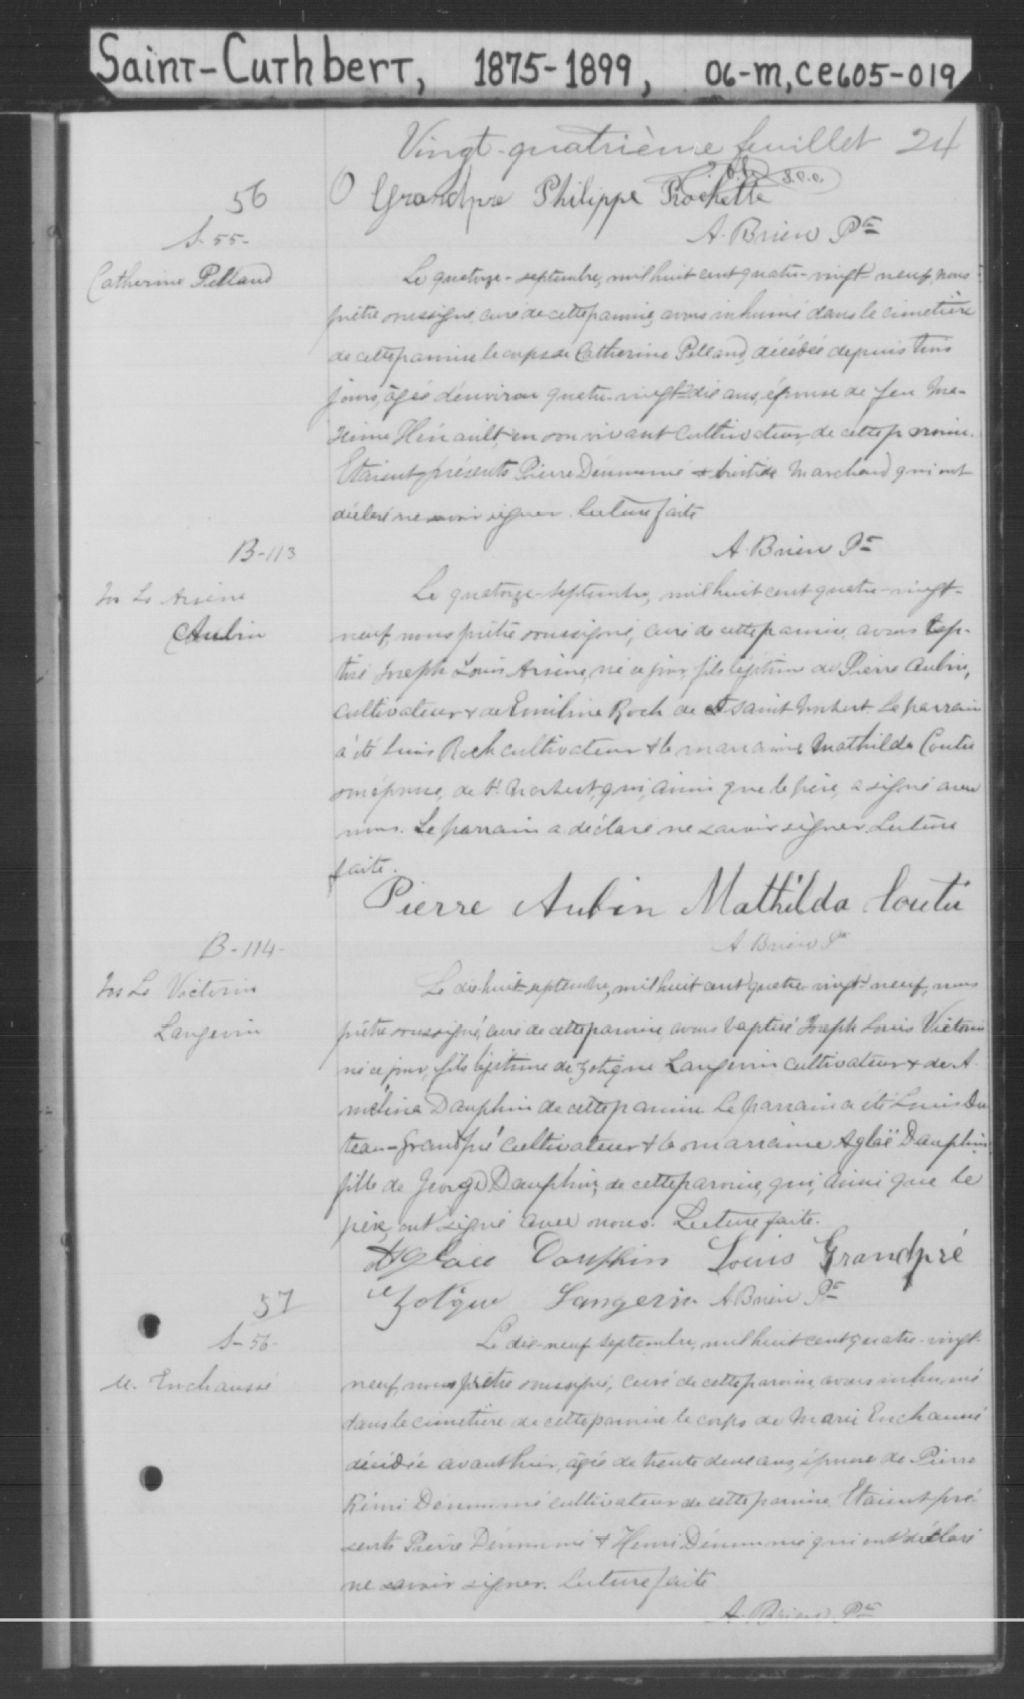 Saint-Cuthbert, 1875-1899, 06-M, CE605-019
Vingt-quatrième feuillet 24
Grandpre Philippe Rochette
P.C.C.
A. Brien Ptre
56
S-55-
Catherine Pelland
Le quatorze septembre, mil huit cent quatre-vingt neuf, nous
prêtre soussigné, curé de cette paroisse, avons inhumé dans le cimetière
de cette paroisse le corps de Catherine Pelland, décédée depuis trois
jours, âgée d'environ quatre-vingt-dix ans, épouse de feu
Hénault, en son vivant cultivateur de cette paroisse.
Etaient présents Pierre Dénommé & Aristide Marchand qui ont
déclaré ne savoir signer. Lecture faite
A. Brien Ptre
B-113
Jos Ls Arsène
Aubin
Le quatorze septembre, mil huit cent quatre-vingt-
neuf, nous prêtre soussigné, curé de cette paroisse, avons bap-
tisé Joseph Louis Arsène, né ce jour, fils légitime de Pierre Aubin,
cultivateur & de Emiline Roch de Saint Norbert. Le parrain
a été Louis Roch cultivateur & la marraine Mathilda Coutu
son épouse, de St Norbert, qui, ainsi que le père, a signé avec
nous. Le parrain a déclaré ne savoir signer. Lecture
faite.
Pierre Aubin Mathilda Coutu
A. Brien Ptre
B-114-
Jos Ls Victorin
Langevin
Le dix huit septembre, mil huit cent quatre-vingt neuf, nous
prêtre soussigné, curé de cette paroisse, avons baptisé Joseph Louis Victorin
né ce jour, fils légitime de Zotique Langevin cultivateur & de A-
mélina Dauphin de cette paroisse. Le parrain a été Louis Du
teau-Grandpré cultivateur & la marraine Aglaë Dauphin,
fille de George Dauphin, de cette paroisse, qui, ainsi que le
père, ont signé avec nous. Lecture faite.
Aglaee Dauphin Louis Grandpré
Zotique Langevin A. Brien Ptre
57
S-56-
M. Enchaussé
Le dix-neuf septembre, mil huit cent quatre-vingt-
neuf, nous prêtre soussigné, curé de cette paroisse, avons inhumé
dans le cimetière de cette paroisse le corps de Marie Enchaussé
décédée avant hier, âgée de trente deux ans, épouse de Pierre
Rémi Dénommé cultivateur de cette paroisse. Etaient pré-
sents Pierre Dénommé & Henri Dénommé qui ont déclaré
ne savoir signer. Lecture faite
A. Brien Ptre